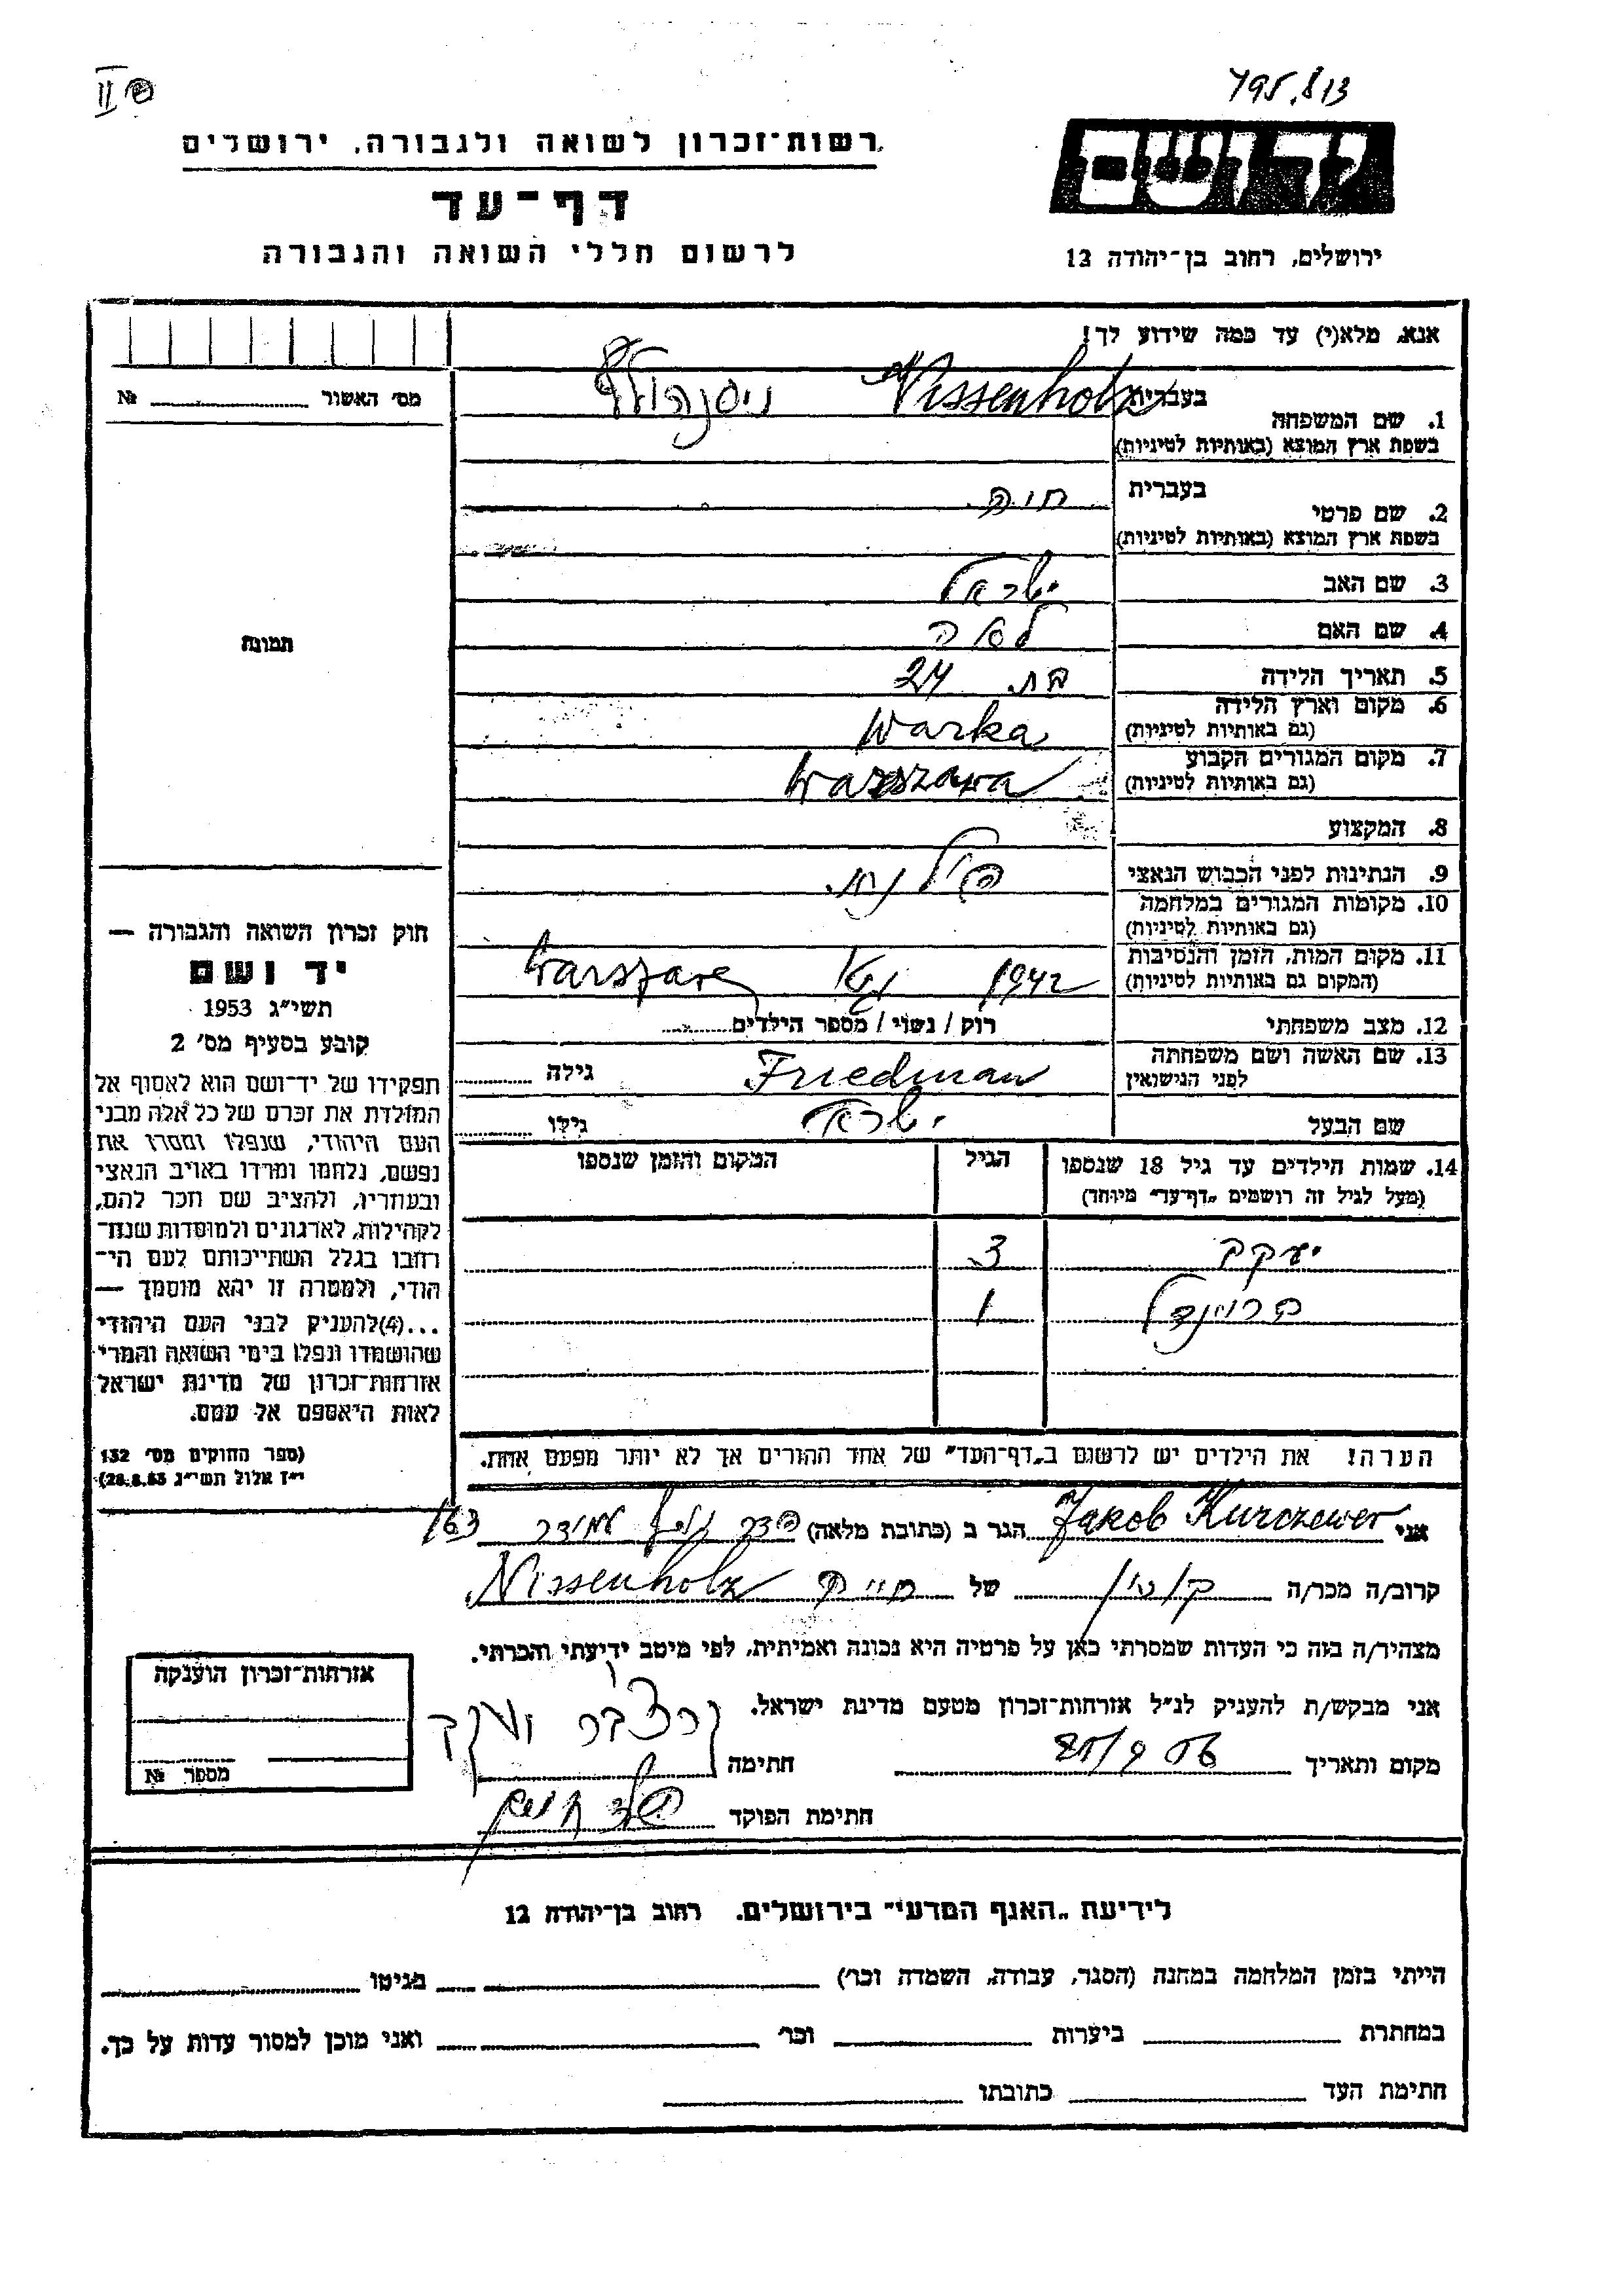 795.813
II
רשות־זכרון לשואה ולגבורה, ירושלים
ידושם
דף־עד
לרשום חללי השואה והגבורה
ירושלים, רחוב בן־יהודה 12
אנא, מלא(י) עד כמה שידוע לך!
מס׳ האשור № 
בעברית Nissenholz ניסנהולץ
1. שם המשפחה
בשפת ארץ המוצא (באותיות לטיניות)
בעברית חיה
2. שם פרטי
בשפת ארץ המוצא (באותיות לטיניות)
3. שם האב ישראל
4. שם האם לאה
5. תאריך הלידה בת 24
6. מקום וארץ הלידה
(גם באותיות לטיניות) Warka
7. מקום המגורים הקבוע
(גם באותיות לטיניות) Warszawa
8. המקצוע
9. הנתינות לפני הכבוש הנאצי פולנית
10. מקומות המגורים במלחמה
(גם באותיות לטיניות)
11. מקום המות, הזמן והנסיבות
(המקום גם באותיות לטיניות) 1942 גטו
12. מצב משפחתי רוק / נשוי / מספר הילדים
13. שם האשה ושם משפחתה
לפני הנישואין Friedman גילה
שם הבעל ישראל גילו
14. שמות הילדים עד גיל 18 שנספו הגיל המקום והזמן שנספו
(מעל לגיל זה רושמים „דף־עד״ מיוחד)
יעקב 3
בריינדל 1
הערה! את הילדים יש לרשום ב„דף־העד״ של אחד ההורים אך לא יותר מפעם אחת.
תמונה
חוק זכרון השואה והגבורה —
יד ושם
תשי״ג 1953
קובע בסעיף מס׳ 2
תפקידו של יד־ושם הוא לאסוף אל
המולדת את זכרם של כל אלה מבני
העם היהודי, שנפלו ומסרו את
נפשם, נלחמו ומרדו באויב הנאצי
ובעוזריו, ולהציב שם וזכר להם,
לקהילות, לארגונים ולמוסדות שנח־
רבו בגלל השתייכותם לעם הי־
הודי, ולמטרה זו יהא מוסמך —
...(4)להעניק לבני העם היהודי
שהושמדו ונפלו בימי השואה והמרי
אזרחות־זכרון של מדינת ישראל
לאות היאספם אל עמם.
(ספר החוקים מס׳ 132
י״ז אלול תשי״ג 28.8.53)
אני Jakob Kurczewer הגר ב (כתובת מלאה) 163
קרוב/ה מכר/ה של חיה Nissenholz
מצהיר/ה בזה כי העדות שמסרתי כאן על פרטיה היא נכונה ואמיתית, לפי מיטב ידיעתי והכרתי.
אני מבקש/ת להעניק לנ״ל אזרחות־זכרון מטעם מדינת ישראל.
מקום ותאריך חתימה
חתימת הפוקד
אזרחות־זכרון הוענקה
מספר №
לידיעת „האגף המדעי״ בירושלים. רחוב בן־יהודה 12
הייתי בזמן המלחמה במחנה (הסגר, עבודה, השמדה וכו׳) בגיטו
במחתרת ביערות וכו׳ ואני מוכן למסור עדות על כך.
חתימת העד כתובתו